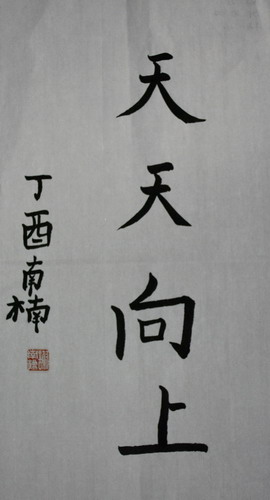 天天向上
丁酉南楠